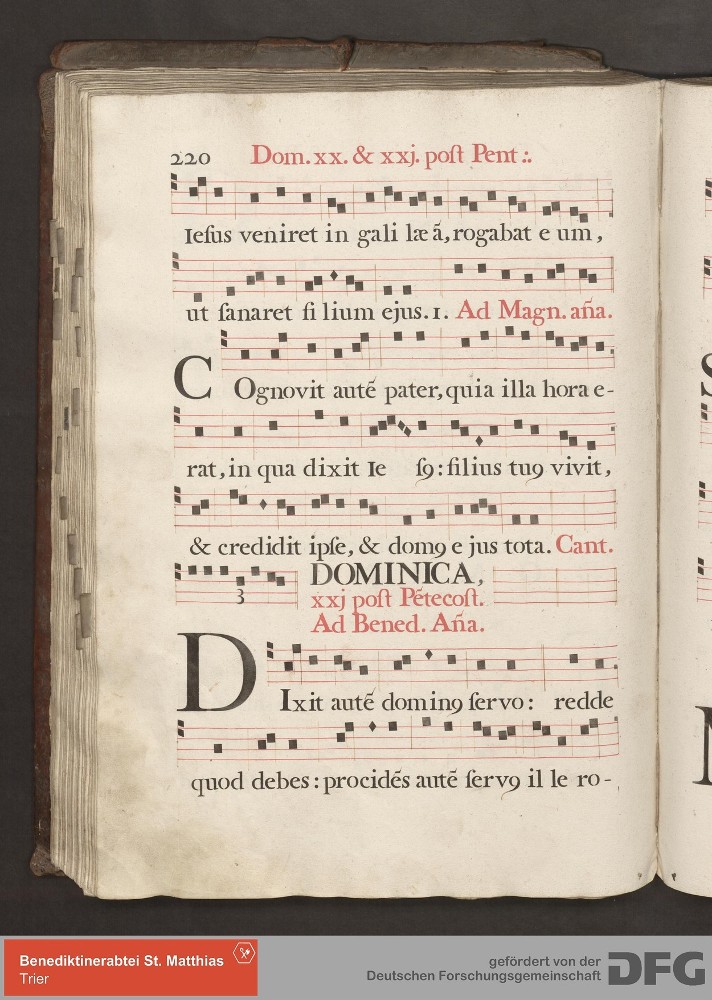 220 Dom. xx. & xxj. poſt Pent :.
Ieſus veniret in gali læ ã, rogabat e um,
ut ſanaret fi lium ejus. 1. Ad Magn. aña.
COgnovit autē pater, quia illa hora e-
rat, in qua dixit Ie ſꝰ: filius tuꝰ vivit,
& credidit ipſe, & domꝰ e jus tota. Cant.
3 DOMINICA,
xxj poſt Pētecoſt.
Ad Bened. Aña.
DIxit autē dominꝰ ſervo: redde
quod debes: procidēs autē ſervꝰ il le ro-
Benediktinerabtei St. Matthias
Trier
gefördert von der
Deutschen Forschungsgemeinschaft
DFG